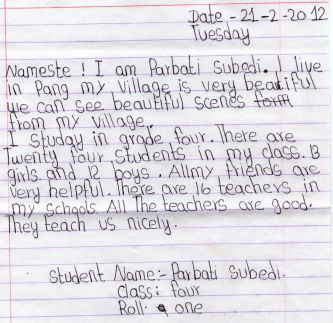 Date - 21 - 2 - 2012
Tuesday
Nameste ! I am Parbati Subedi. I live
in Pang my village is very beautiful
we can see beautiful scenes form
from my village.
I studay in grade four. There are
Twenty four students in my class. 13
girls and 12 boys. All my friends are
very helpful. There are 16 teachers in
my schools. All The teachers are good.
They teach us nicely.
Student Name:- Parbati Subedi.
class: four
Roll: one